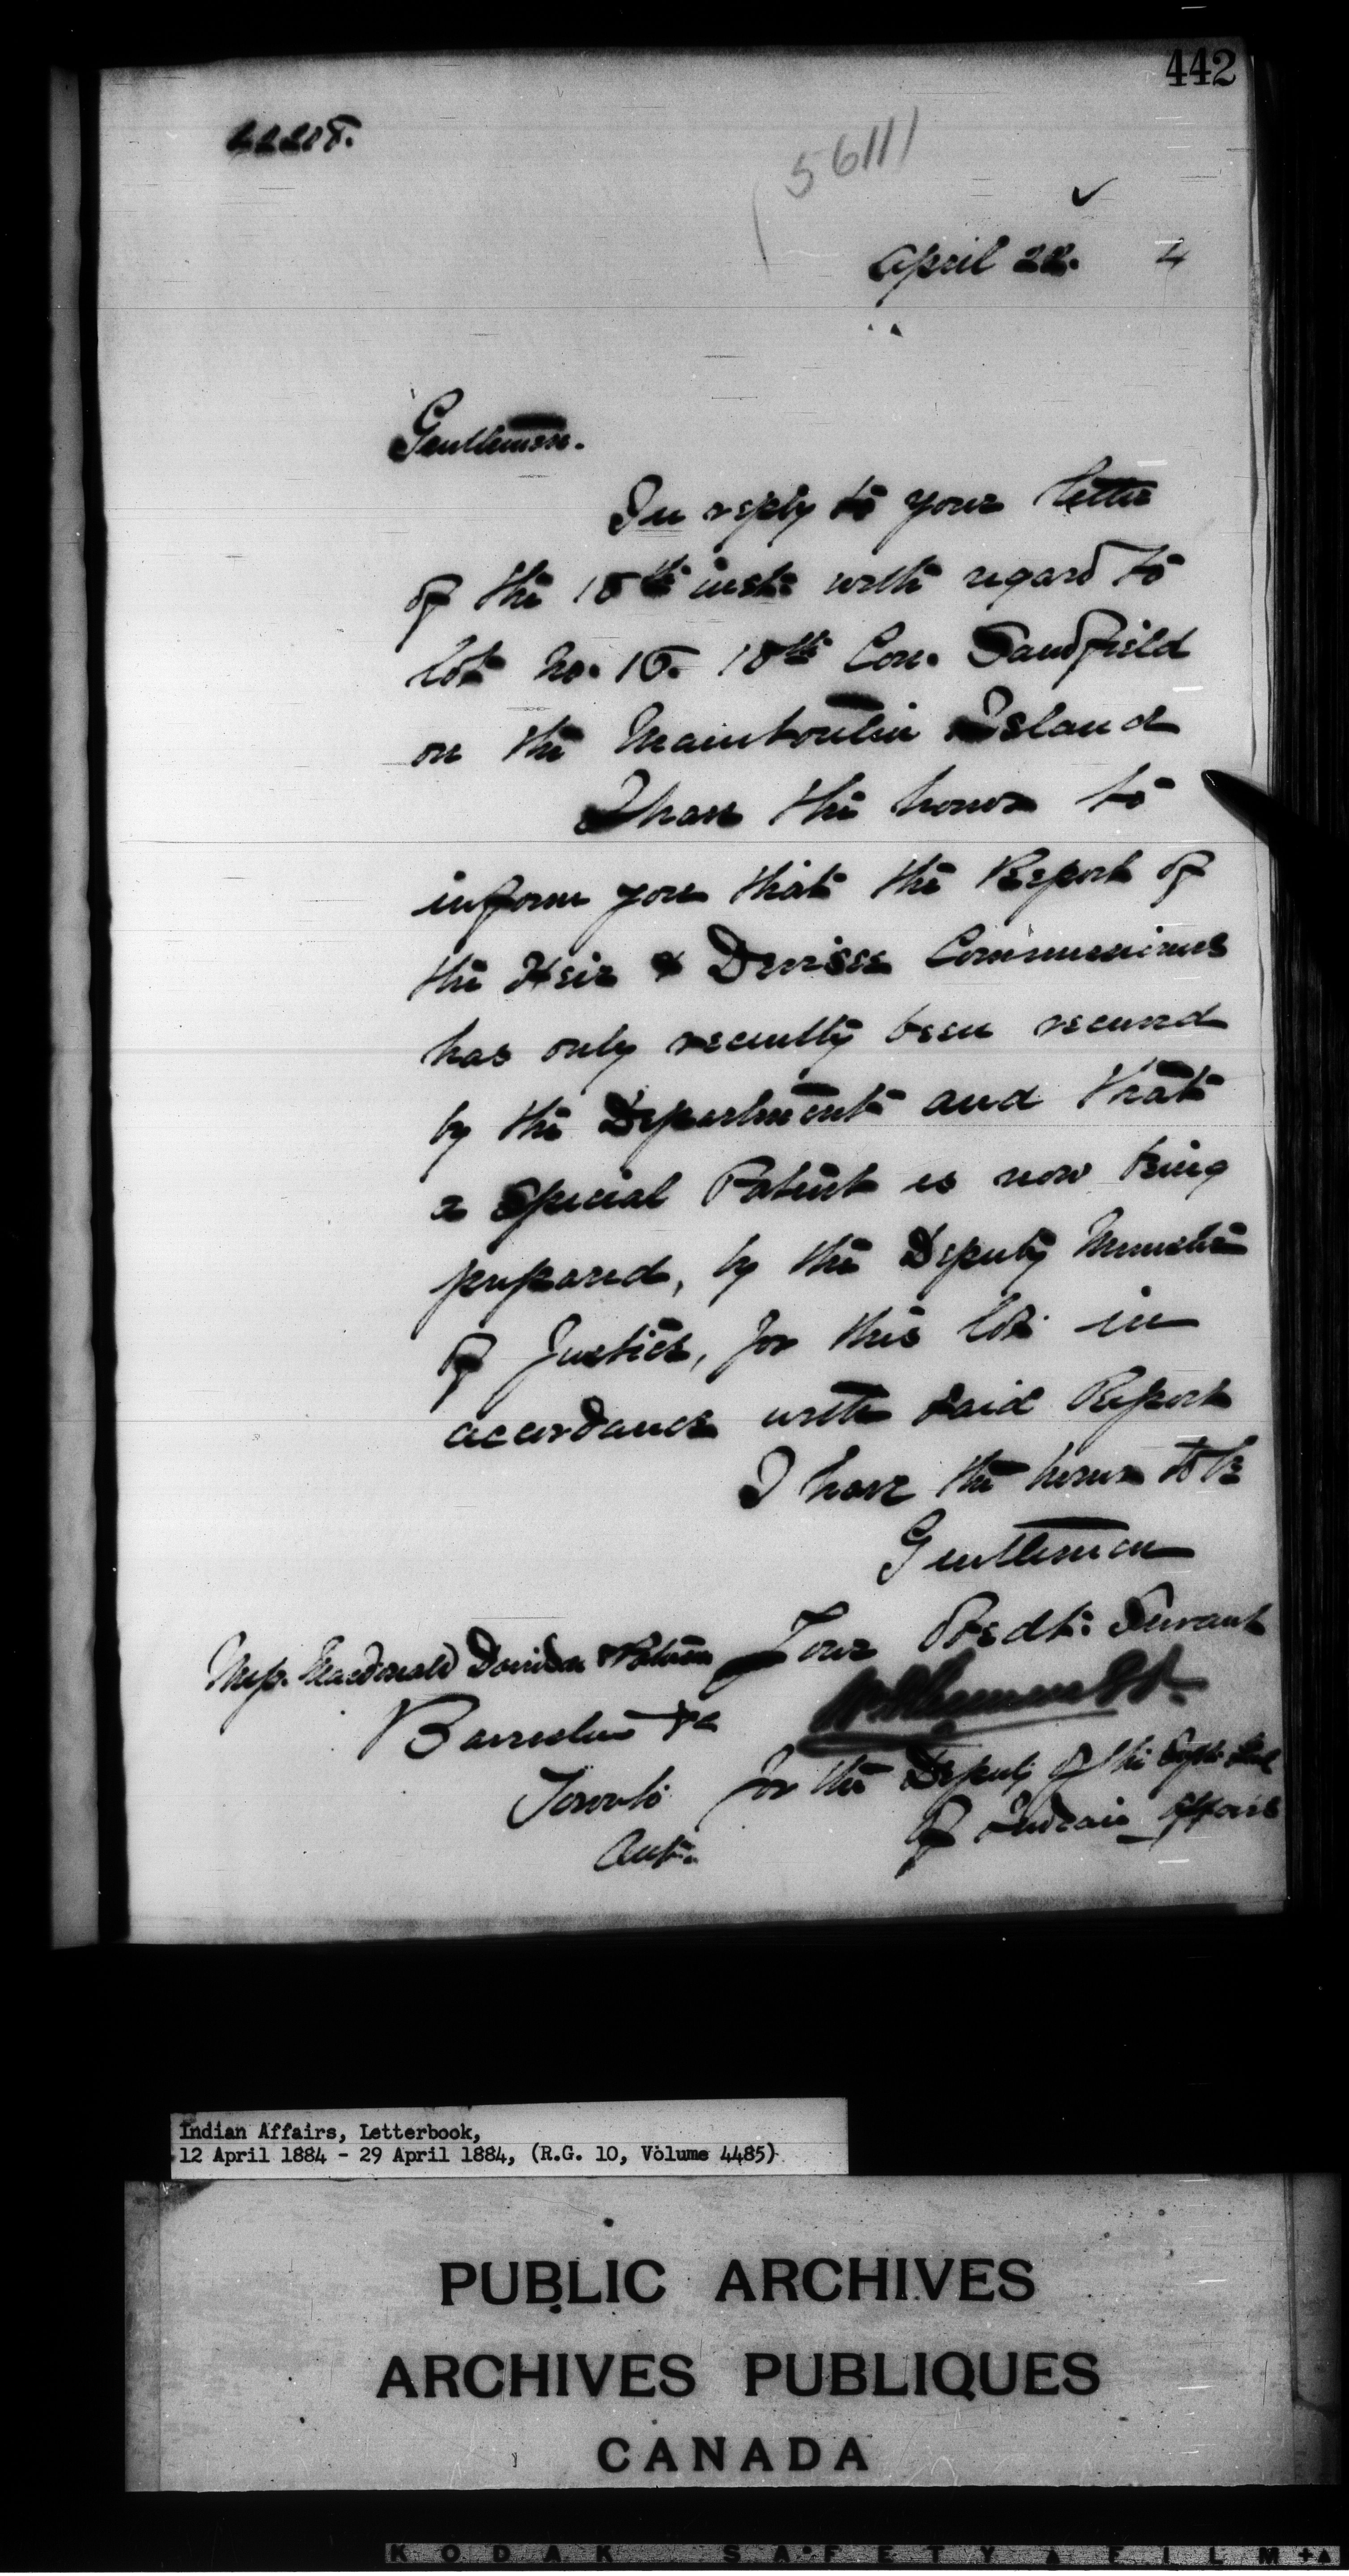 442
56111
April 22. 4
Gentlemen.
In reply to your letter
of the 18th inst: with regard to
lot no. 16. 10th Con. Sandfield
on the Manitoulin Island
I have the honor to
inform you that the Report of
the Heir & Devisee Commissioners
has only recently been received
by the Department and that
a Special Patent is now being
prepared, by the Deputy Minister
of Justice, for this lot in
accordance with said Report
I have the honor to be
Gentlemen
Your Obedt: Servant
Mess. Macdonald Davidson & Paterson
Barristers &c
Toronto
Ont.
for the Deputy of the Supt. Genl
of Indian Affairs
Indian Affairs, Letterbook,
12 April 1884 - 29 April 1884, (R.G. 10, Volume 4485)
PUBLIC ARCHIVES
ARCHIVES PUBLIQUES
CANADA
KODAK SAFETY FILM